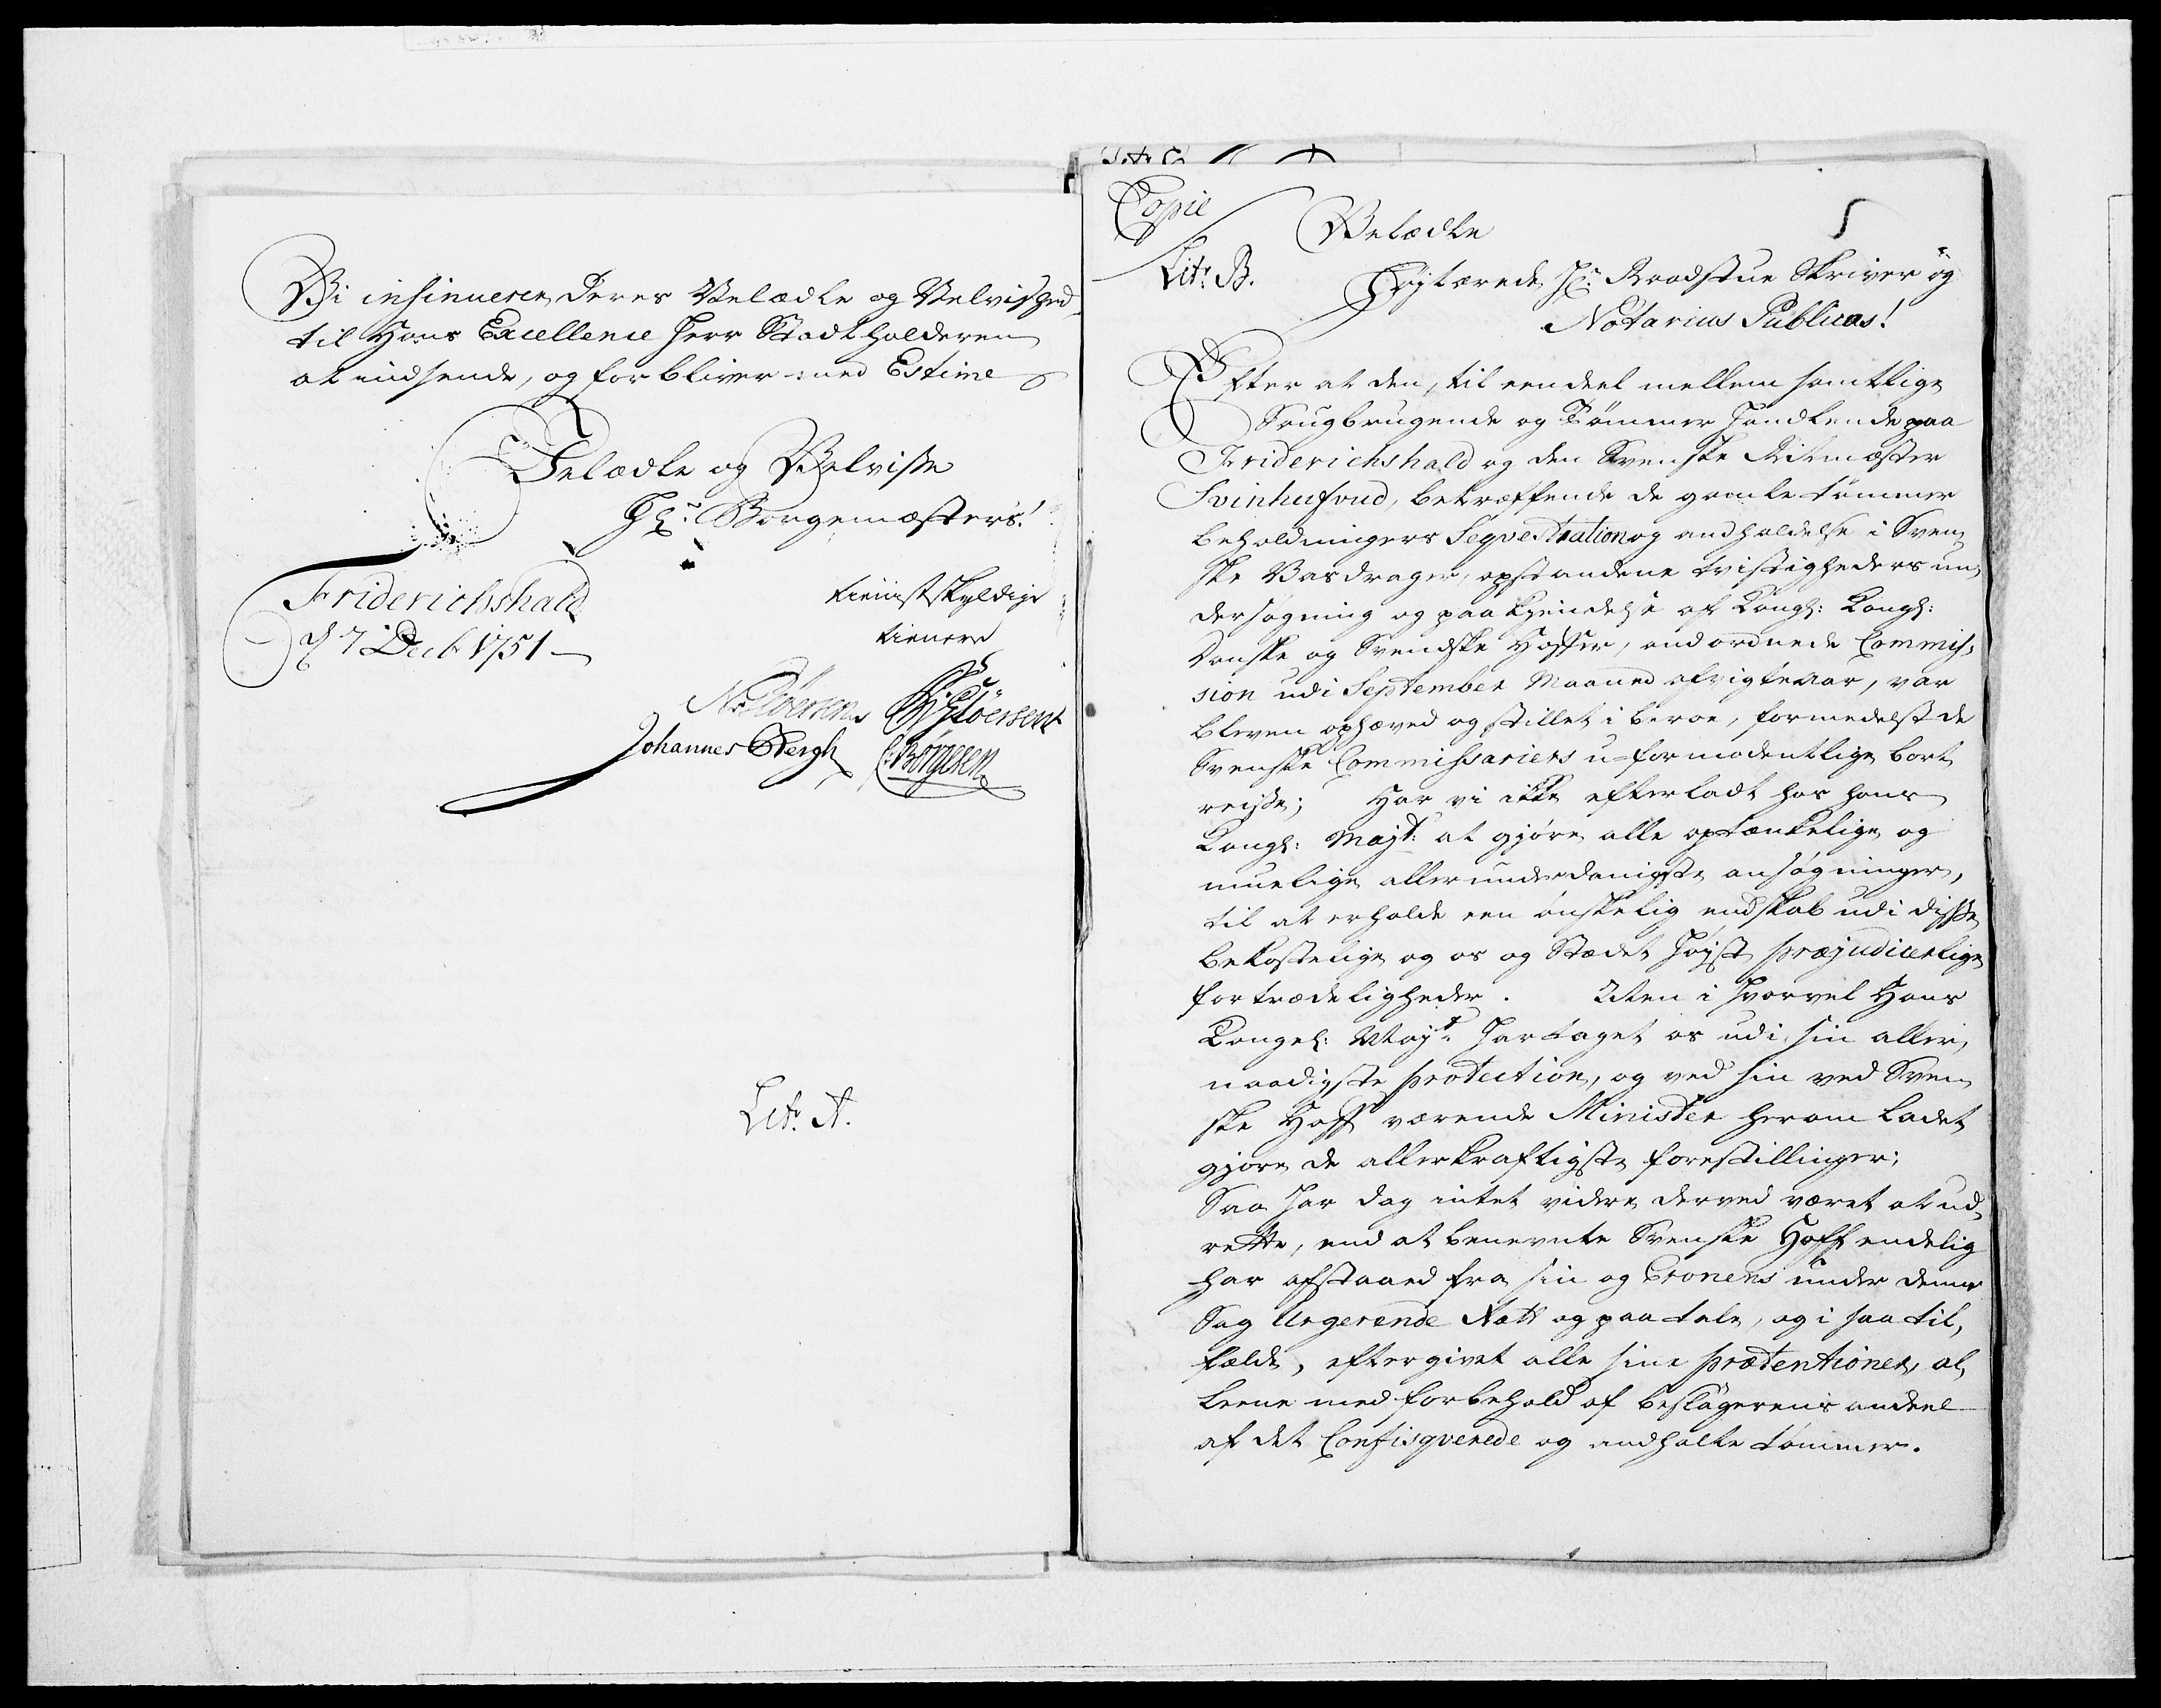 Vi insinuerer Deres Velædle og Velvished
til Hans Excellence Herr Stadtholderen
at indsende, og forbliver med Estime
Velædle og Velvise
Hr: Borgemæsters!
Friderichshald
d 7 Decb 1751
tienistskyldige
tienere
N: Stoersen
Stoersen
Johannes Bergh
C: Børgesen
Litr. A.
Copie
Litr. B.
Velædle
Højlærede Hr. Raadstue Skriver og
Notarius Publicus!
Efter at den, til een deel mellem samtlige
Saugbrugende og Tømmer Handlende paa
Friderichshald og den Svenske Ritmæster
Svinhufvud, betræffende de gamle tømmer
beholdningers Seqvestration og andholdelse i Sven
ske Vasdrager, opstandene tvistigheders un,
dersøgning og paakjendelse af Kongl: Kongl:
Danske og Svendske Hoffer, andordnede Commis,
sion udi September Maaned afvigte aar, var
bleven ophæved og stillet i beroe, formedelst de
Svenske Commissariers u-formodentlige bort
reise; Har vi ikke efterladt hos hans
Kongl: Majt: at gjøre alle optænkelige og
muelige allerunderdanigste ansøgninger,
til at erholde een ønskelig endskab udi disse
bekostelige og os og Stædet højst præjudicerlige
fortrædeligheder. Men i hvorvel Hans
Kongel: Majt. har taget os udi sin aller,
naadigste protection, og ved sin ved Sven
ske Hoff værende Minister herom ladet
gjøre de allerkraftigste forestillinger;
Saa har dog intet videre derved været at ud,
rette, end at benevnte Svenske Hoff endelig
har afstaaed fra sin og Cronens under denne
Sag Urgerende Rett og paatale, og i saa til,
fælde, eftergivet alle sine prætentioner, al,
leene med forbehold af beslagerens andeel
af det Confisqverede og andholte tømmer.